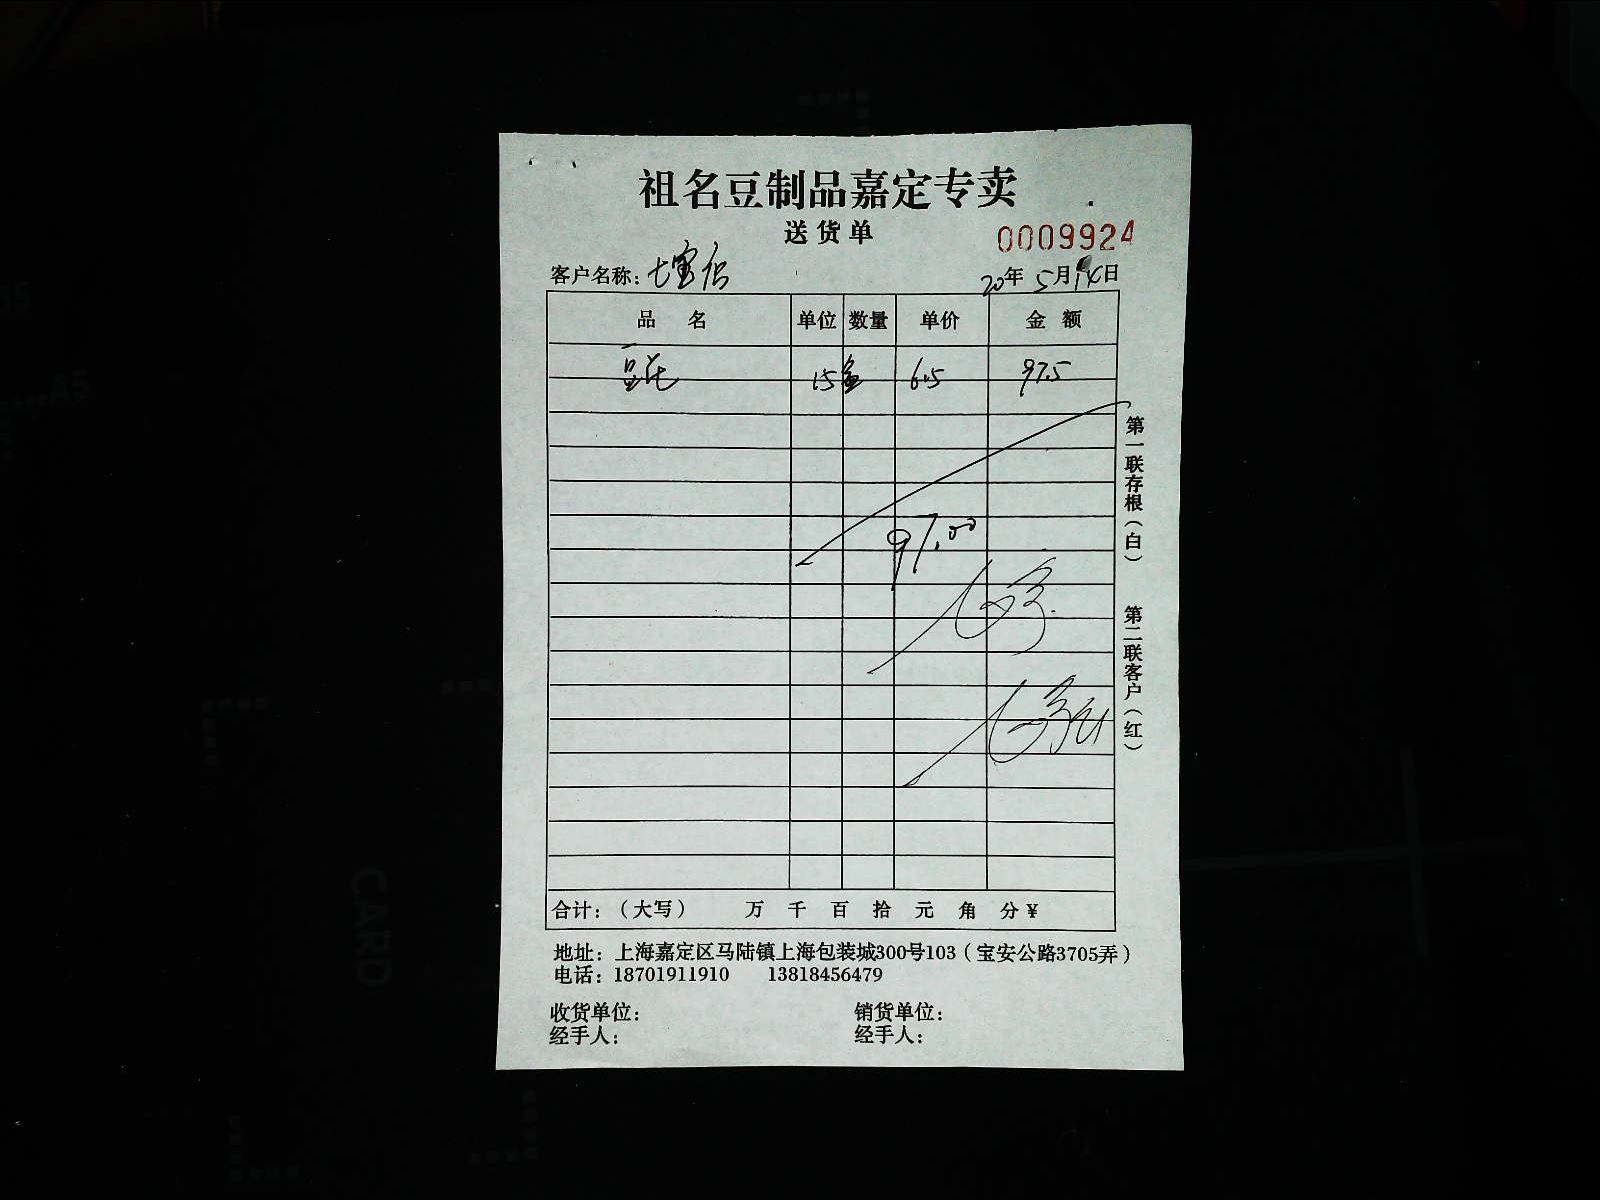 祖名豆制品嘉定专卖
送货单
0009924
客户名称：七宝店 20年5月14日
品名 单位 数量 单价 金额
15盒 6.5 97.5
97.00
第一联存根（白） 第二联客户（红）
合计：（大写） 万 千 百 拾 元 角 分￥
地址：上海嘉定区马陆镇上海包装城300号103（宝安公路3705弄）
电话：18701911910 13818456479
收货单位： 销货单位：
经手人： 经手人：
CARD
A5